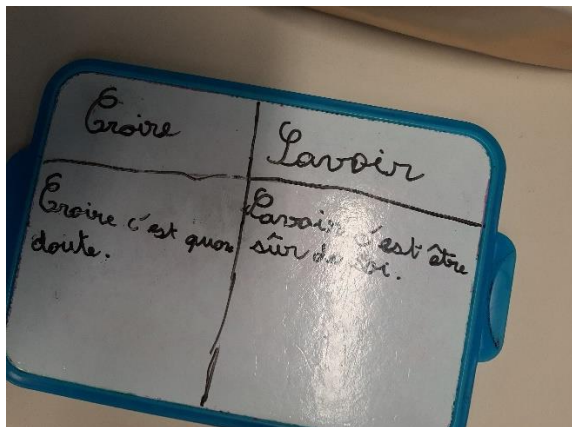 Croire
Savoir
Croire c'est quon
doute.
Savoir c'est être
sûr de soi.